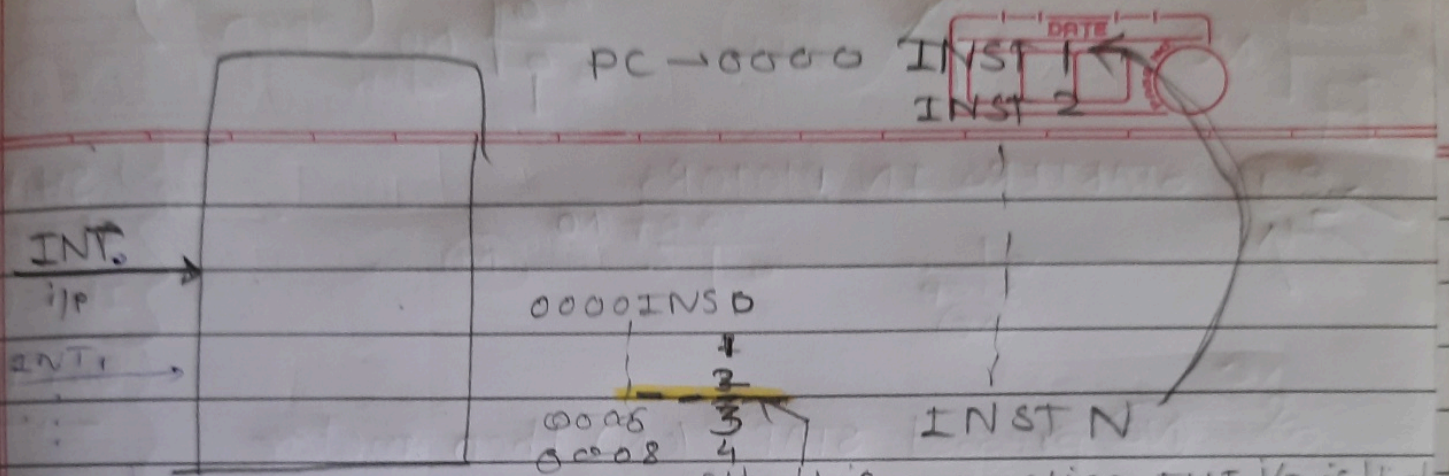 DATE
PC → 0000 INST 1
INST 2
INT.
i/p
0000 INS 0
INT1
1
2
3
0008 4
INST N